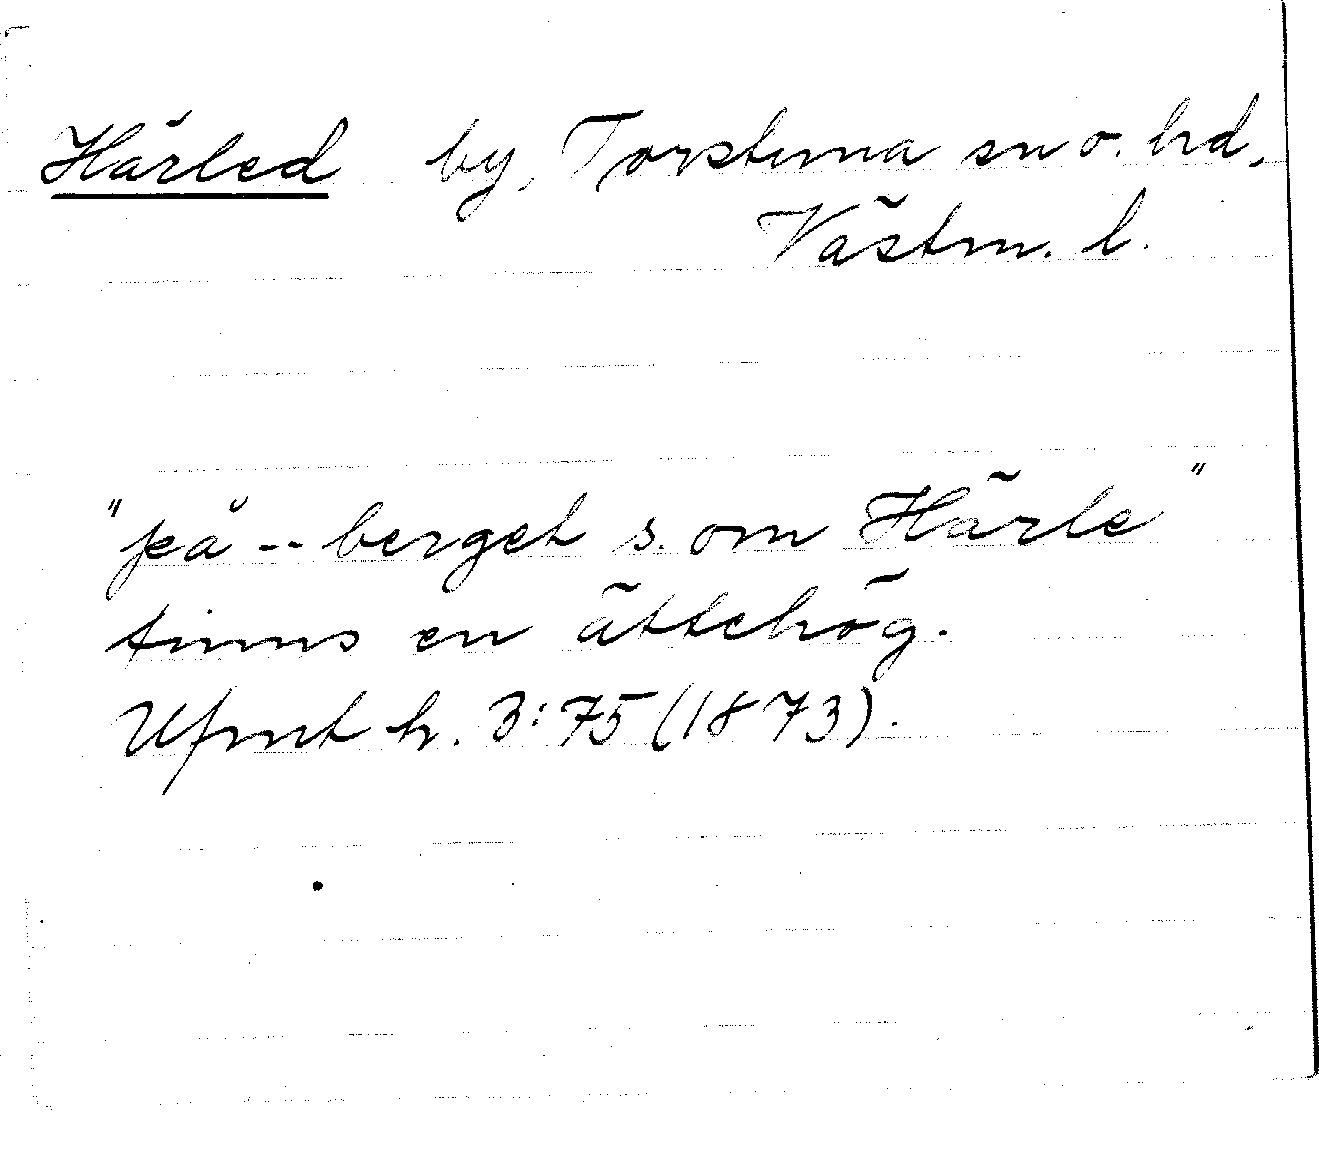 Härled by, Torstuna sn o. hd,
Västm. l.
"på -- berget s. om Härle"
finns en ättehög.
Ufmt h. 3:75 (1873).